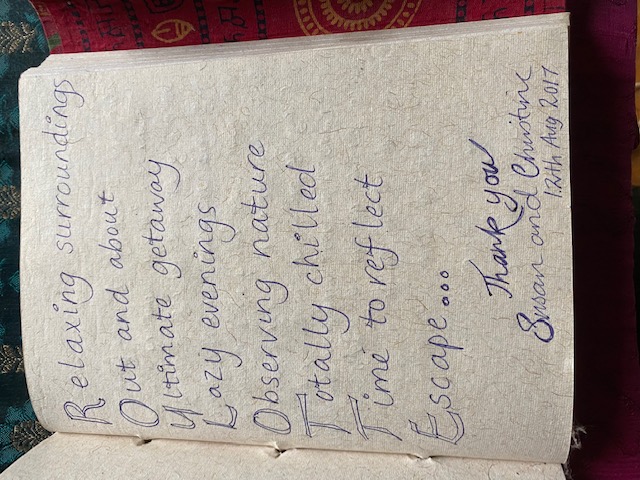 Relaxing surroundings
Out and about
Ultimate getaway
Lazy evenings
Observing nature
Totally chilled
Time to reflect
Escape...
Thank you
Susan and Christine
12th Aug 2017